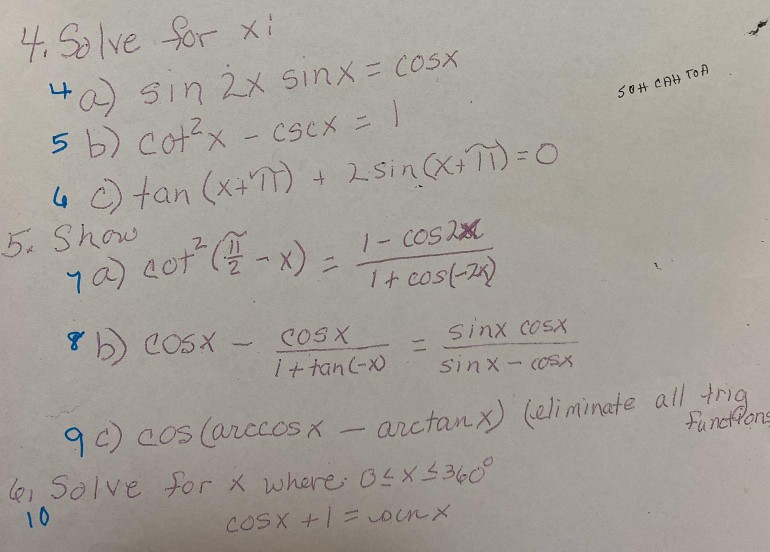 4. Solve for x:
4 a) sin 2x sinx = cosx
SOH CAH TOA
5 b) cot²x - cscx = 1
6 c) tan (x+π) + 2 sin(x+π) = 0
5. Show
7 a) cot² (π/2 - x) = 1 - cos2x / 1 + cos(-2x)
8 b) cosx - cosx / 1 + tan(-x) = sinx cosx / sinx - cosx
9 c) cos (arccosx - arctanx) (eliminate all trig functions
6. Solve for x where 0 ≤ x ≤ 360°
10 cosx + 1 = sin x